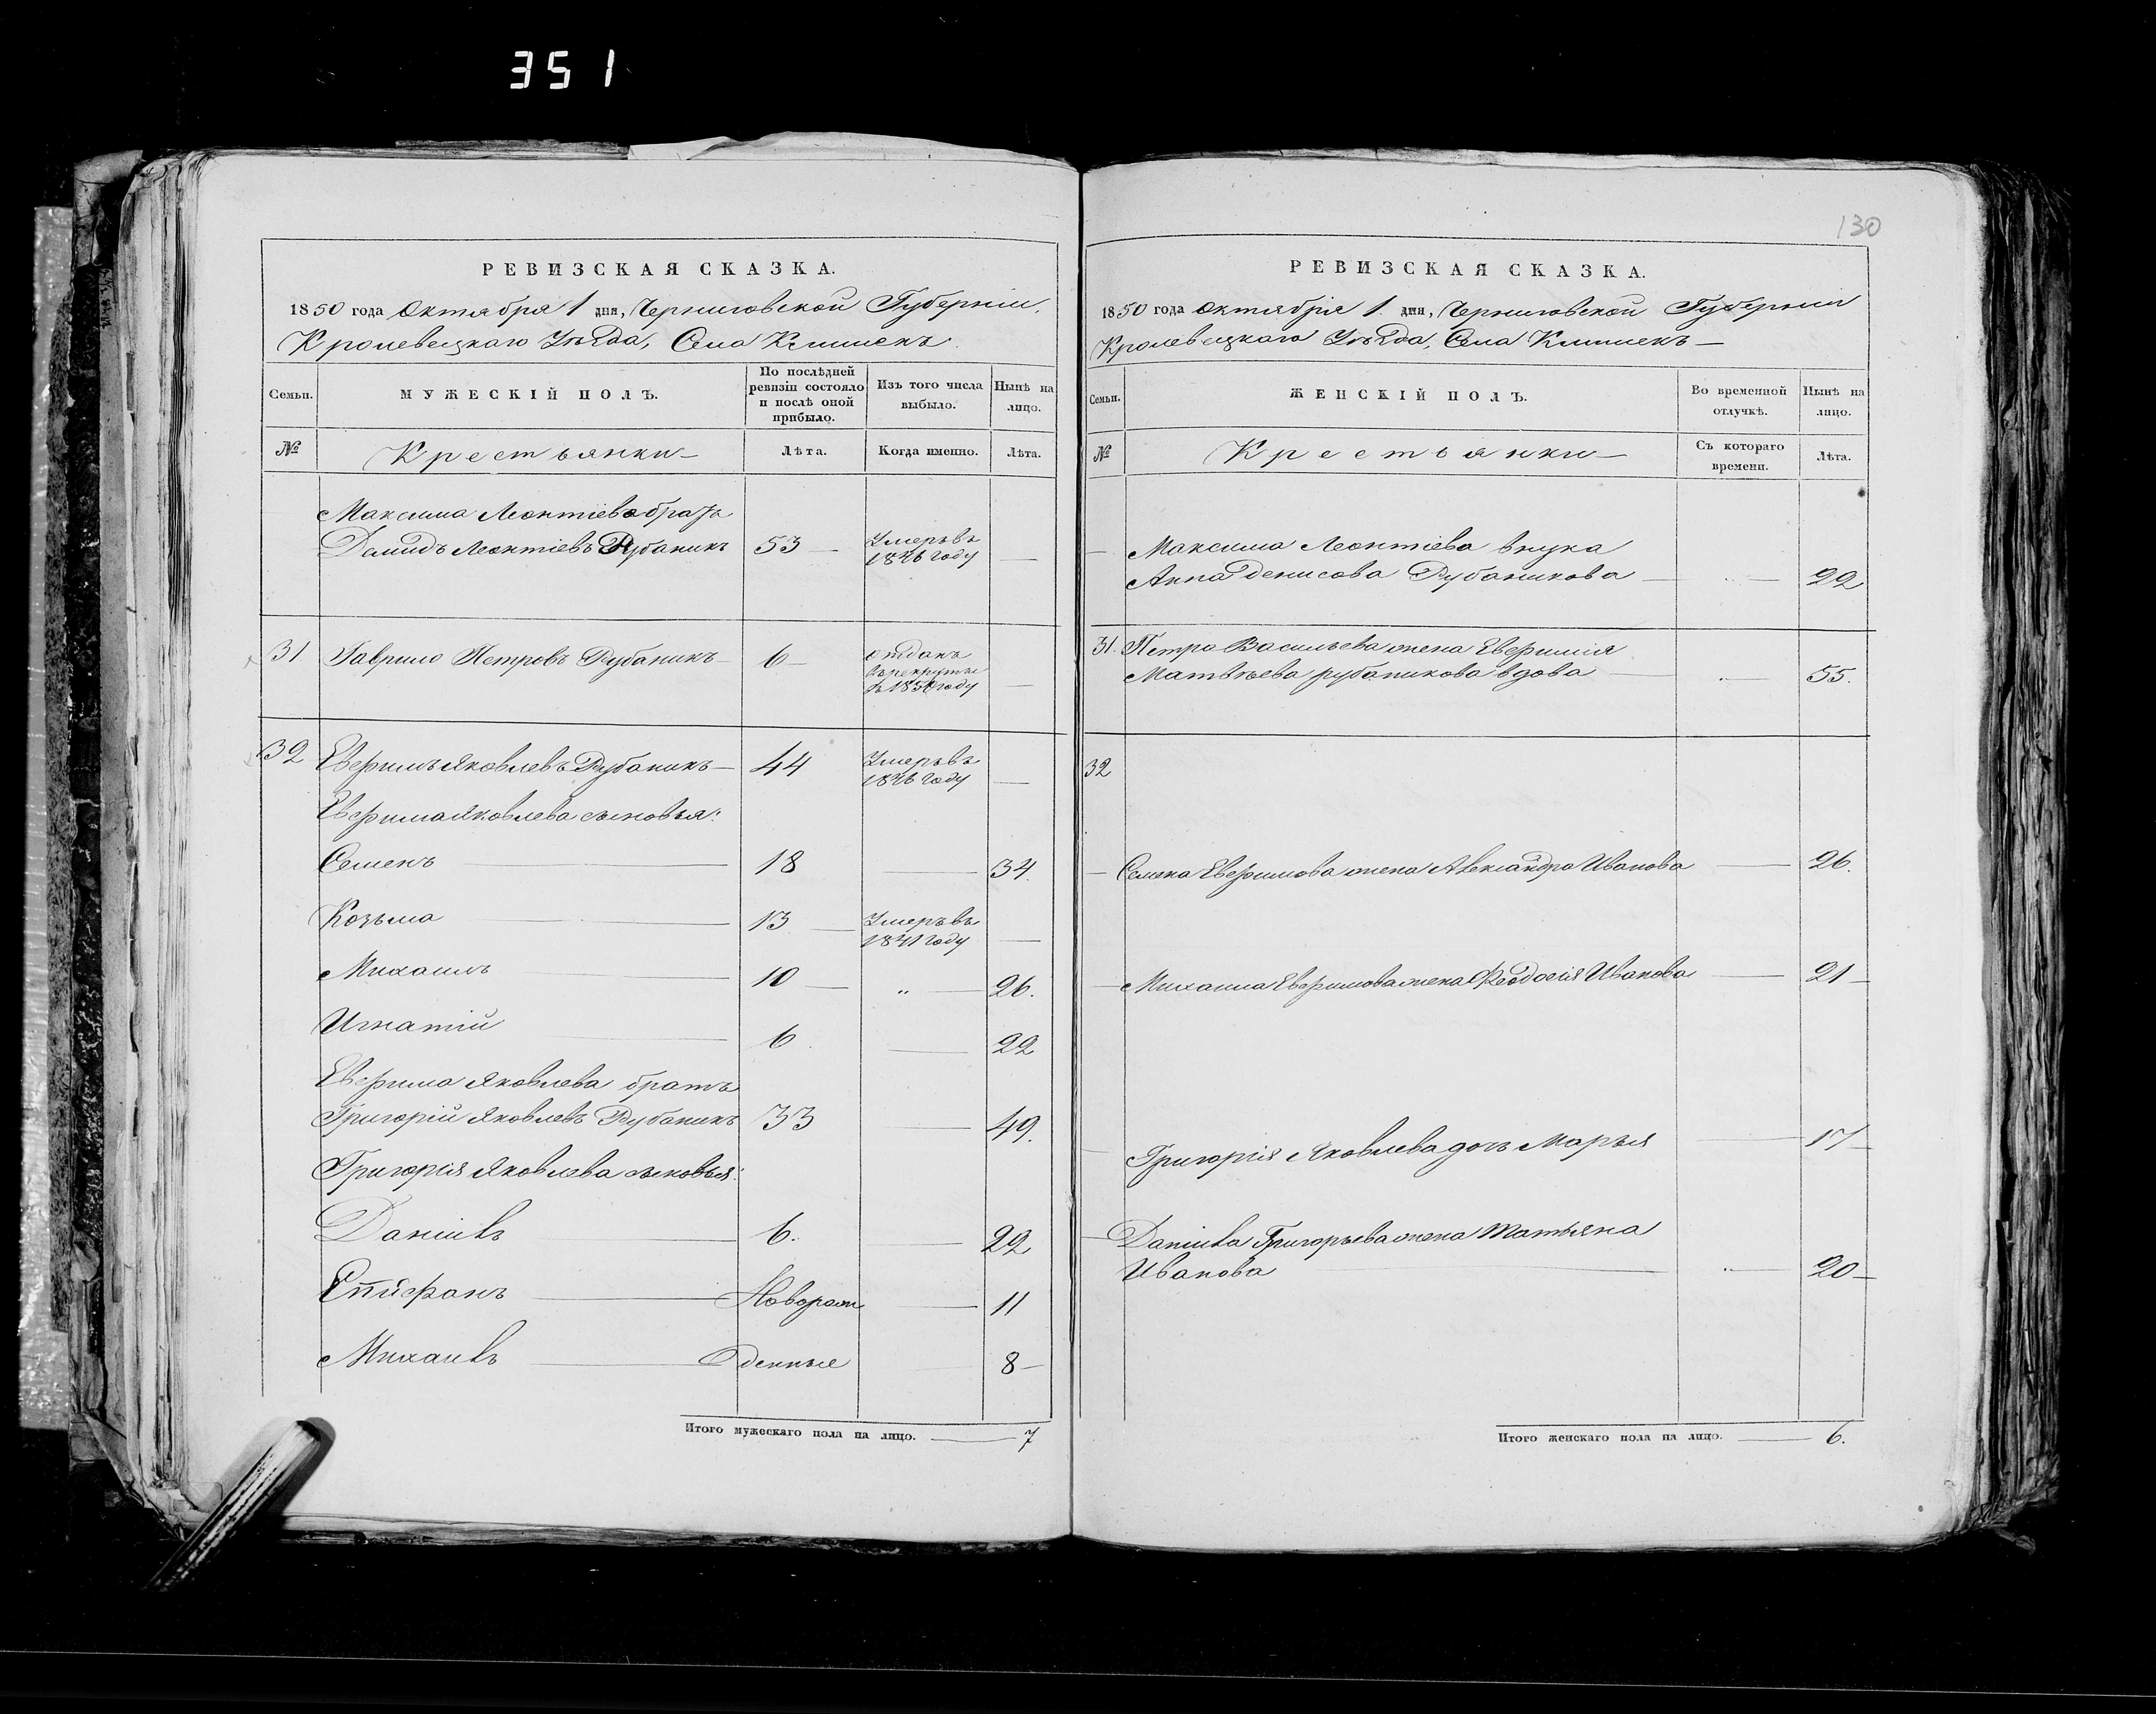 351
130
РЕВИЗСКАЯ СКАЗКА.
1850 года Октября 1 дня, Черниговской Губерніи,
Кролевецкаго Уѣзда, Села Клишекъ
Семьи.
МУЖЕСКІЙ ПОЛЪ.
По послѣдней ревизіи состояло и послѣ оной прибыло.
Изъ того числа выбыло.
Нынѣ на лицо.
№
Крестьянки
Лѣта.
Когда именно.
Лѣта.
Максима Леонтіева братъ
Демидъ Леонтіевъ Рубаникъ 53 — Умеръ въ 1846 году —
31 Гаврило Петровъ Рубаникъ — 6 — отданъ въ рекруты въ 1850 году —
32 Евфимъ Яковлевъ Рубаникъ — 44 Умеръ въ 1846 году —
Евфима Яковлева сыновья:
Семенъ — 18 — 34.
Козьма — 13 — Умеръ въ 1841 году —
Михаилъ — 10 — „ — 26.
Игнатій — 6 — 22
Евфима Яковлева братъ
Григорій Яковлевъ Рубаникъ 33 — 49.
Григорія Яковлева сыновья:
Даніилъ — 6. — 22
Епифанъ — Новорож — 11
Михаилъ — денные 8 —
Итого мужескаго пола на лицо. — 7
РЕВИЗСКАЯ СКАЗКА.
1850 года Октября 1 дня, Черниговской Губерніи
Кролевецкаго Уѣзда, Села Клишекъ —
Семьи.
ЖЕНСКІЙ ПОЛЪ.
Во временной отлучкѣ.
Нынѣ на лицо.
№
Крестьянки —
Съ котораго времени.
Лѣта.
— Максима Леонтіева внука
Анна Денисова Рубаникова — „ — 22
31. Петра Васильева жена Евфимія
Матвѣева рубаникова вдова „ — 55.
32
— Семена Евфимова жена Александра Иванова — 26.
— Михаила Евфимова жена Феодосія Иванова — 21 —
— Григорія Яковлева дочь Марья — 17 —
— Даніила Григорьева жена Татьяна
Иванова — „ — 20 —
Итого женскаго пола на лицо. — 6.